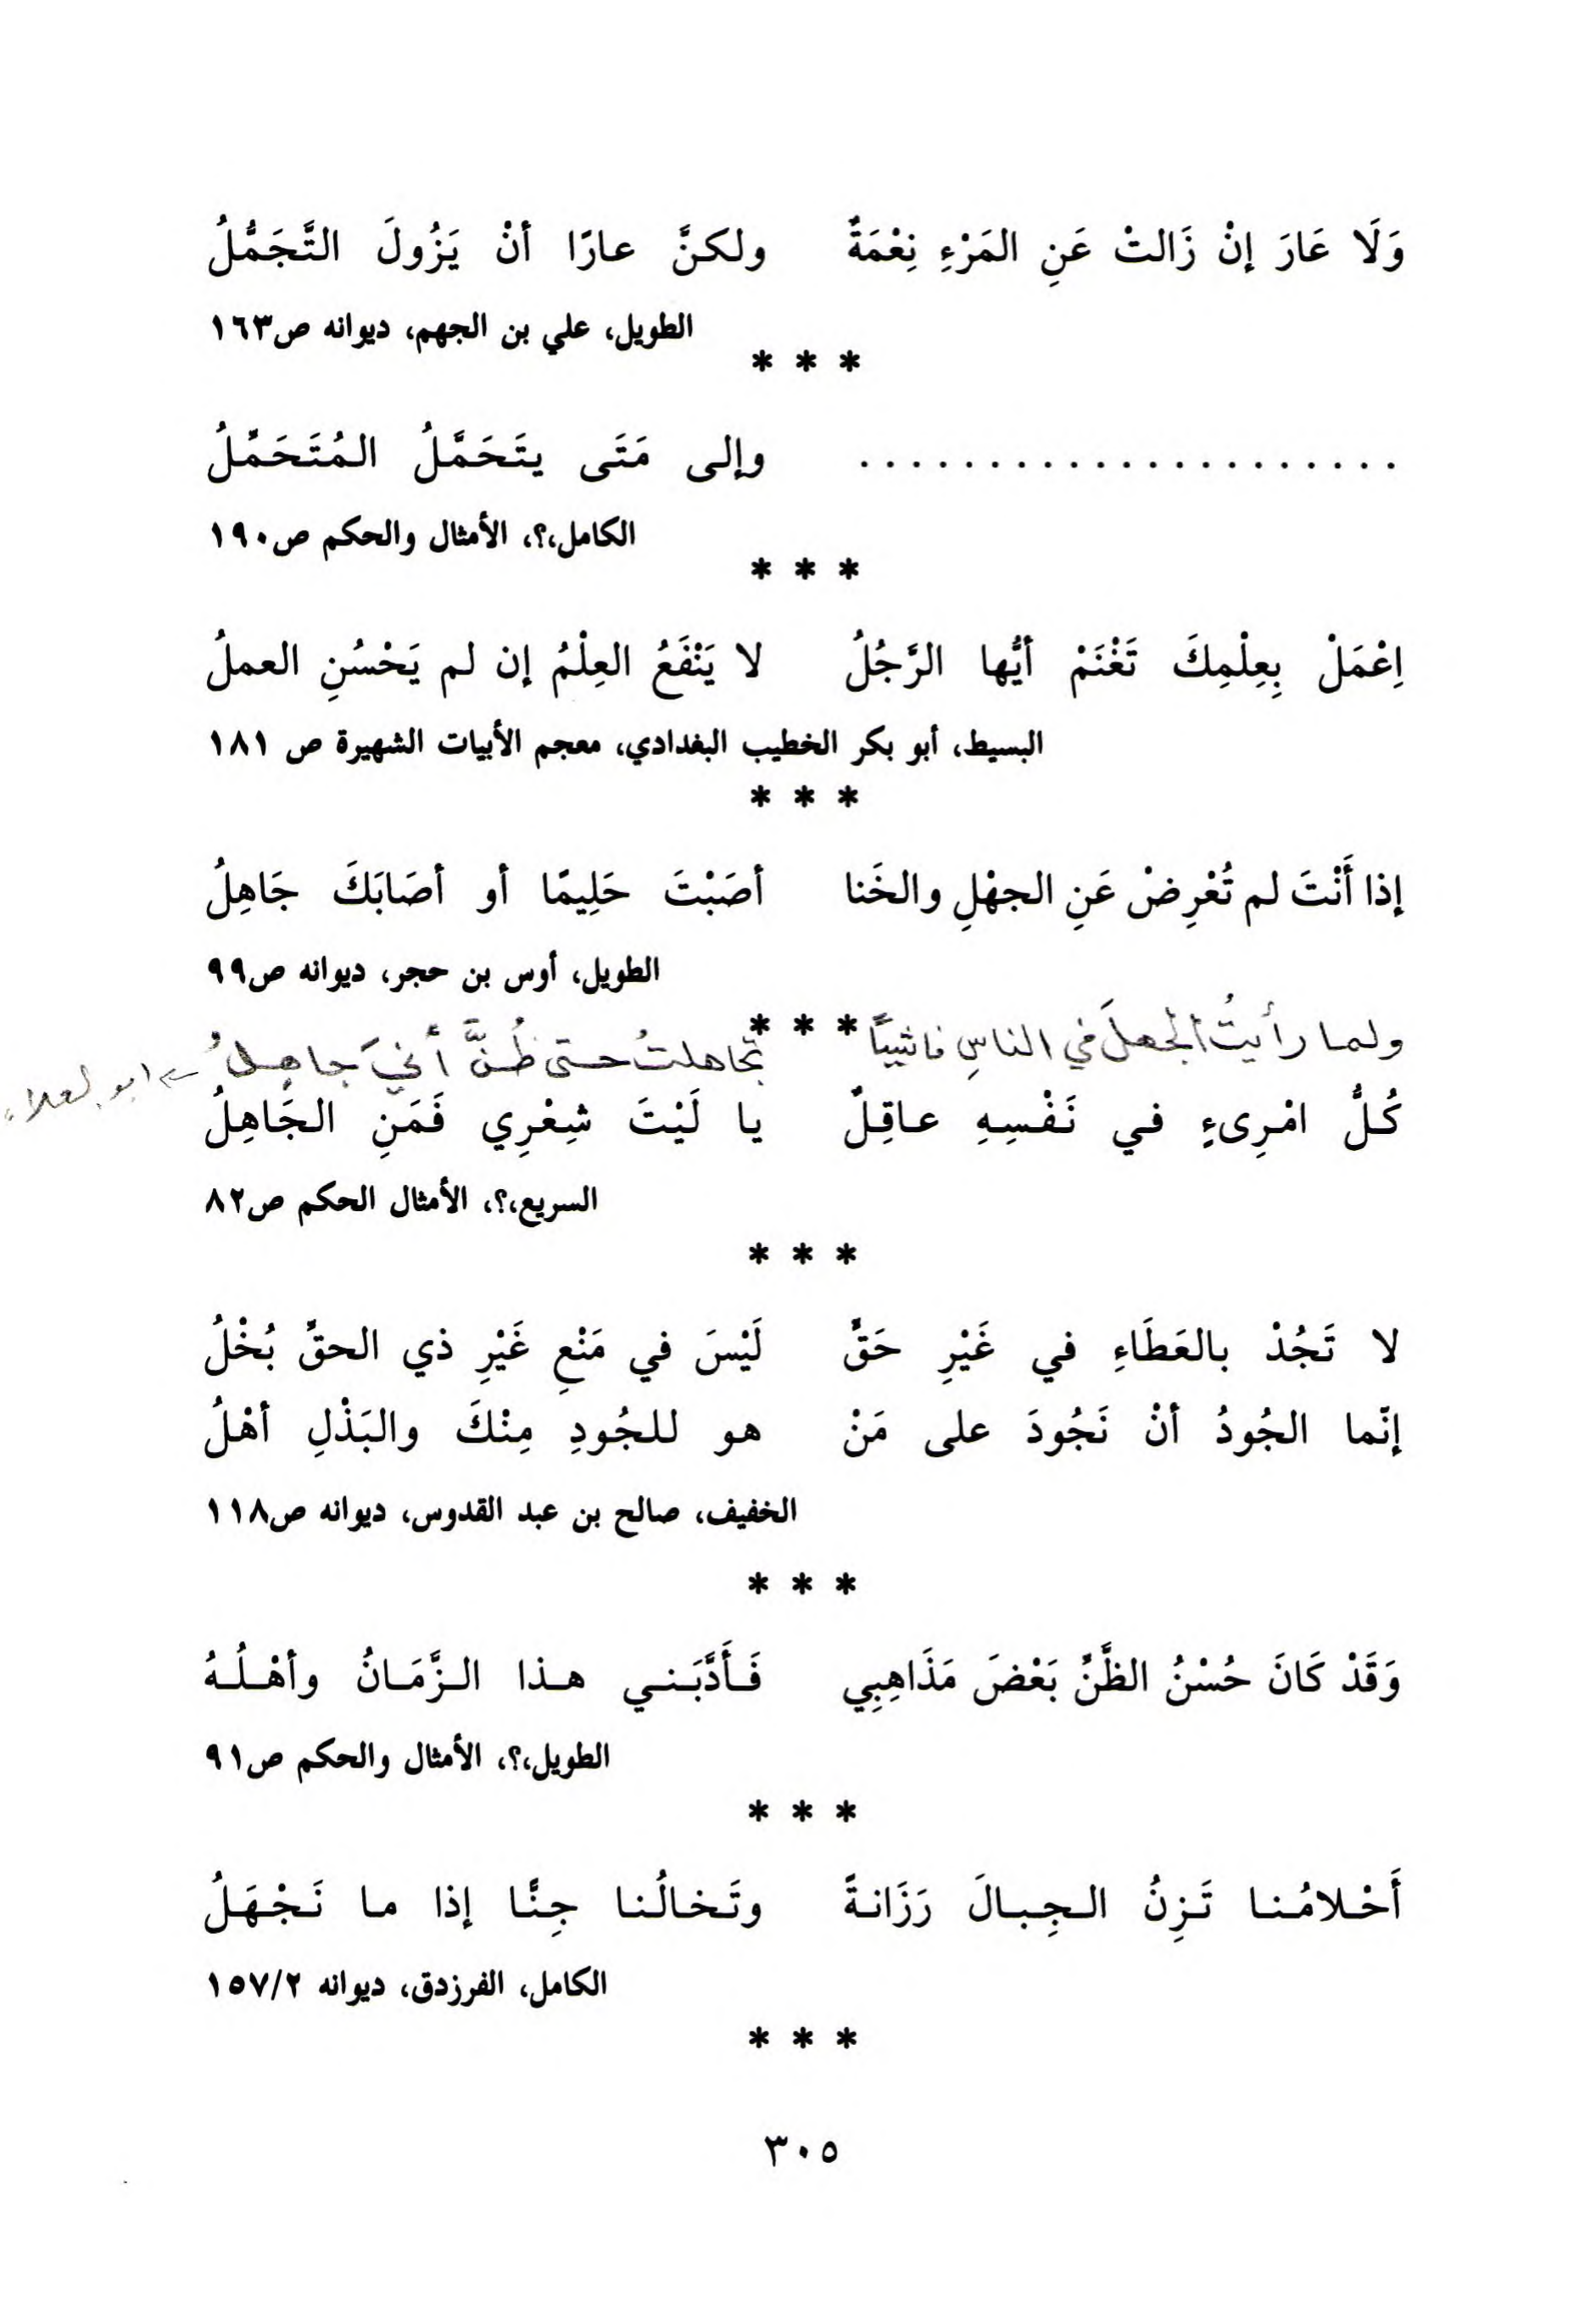 وَلَا عَارَ إنْ زَالتْ عَنِ المَرْءِ نِعْمَةٌ ولكنَّ عارًا أنْ يَزُولَ التَّجَمُّلُ
الطويل، علي بن الجهم، ديوانه ص١٦٣
* * *
...................... وإلى مَتَى يتَحَمَّلُ المُتَحَمِّلُ
الكامل،؟، الأمثال والحكم ص١٩٠
* * *
اِعْمَلْ بِعِلْمِكَ تَغْنَمْ أيُّها الرَّجُلُ لا يَنْفَعُ العِلْمُ إن لم يَحْسُنِ العملُ
البسيط، أبو بكر الخطيب البغدادي، معجم الأبيات الشهيرة ص ١٨١
* * *
إذا أَنْتَ لم تُعْرِضْ عَنِ الجهْلِ والخَنا أصَبْتَ حَلِيمًا أو أصَابَكَ جَاهِلُ
الطويل، أوس بن حجر، ديوانه ص٩٩
* * *
ولما رأيتُ الجهلَ في الناسِ فاشيًا تجاهلتُ حتى ظُنَّ أنيَ جاهلُ ← ابو لعلاء
كُلُّ امْرِىءٍ في نَفْسِهِ عاقِلٌ يا لَيْتَ شِعْرِي فَمَنِ الجَاهِلُ
السريع،؟، الأمثال الحكم ص٨٢
* * *
لا تَجُدْ بالعَطَاءِ في غَيْرِ حَقٍّ لَيْسَ في مَنْعِ غَيْرِ ذي الحقِّ بُخْلُ
إنّما الجُودُ أنْ نَجُودَ على مَنْ هو للجُودِ مِنْكَ والبَذْلِ أهْلُ
الخفيف، صالح بن عبد القدوس، ديوانه ص١١٨
* * *
وَقَدْ كَانَ حُسْنُ الظَّنِّ بَعْضَ مَذَاهِبِي فَأَدَّبَني هذا الزَّمَانُ وأهْلُهُ
الطويل،؟، الأمثال والحكم ص٩١
* * *
أَحْلامُنا تَزِنُ الجِبالَ رَزَانةً وتَخالُنا جِنًّا إذا ما نَجْهَلُ
الكامل، الفرزدق، ديوانه ١٥٧/٢
* * *
٣٠٥